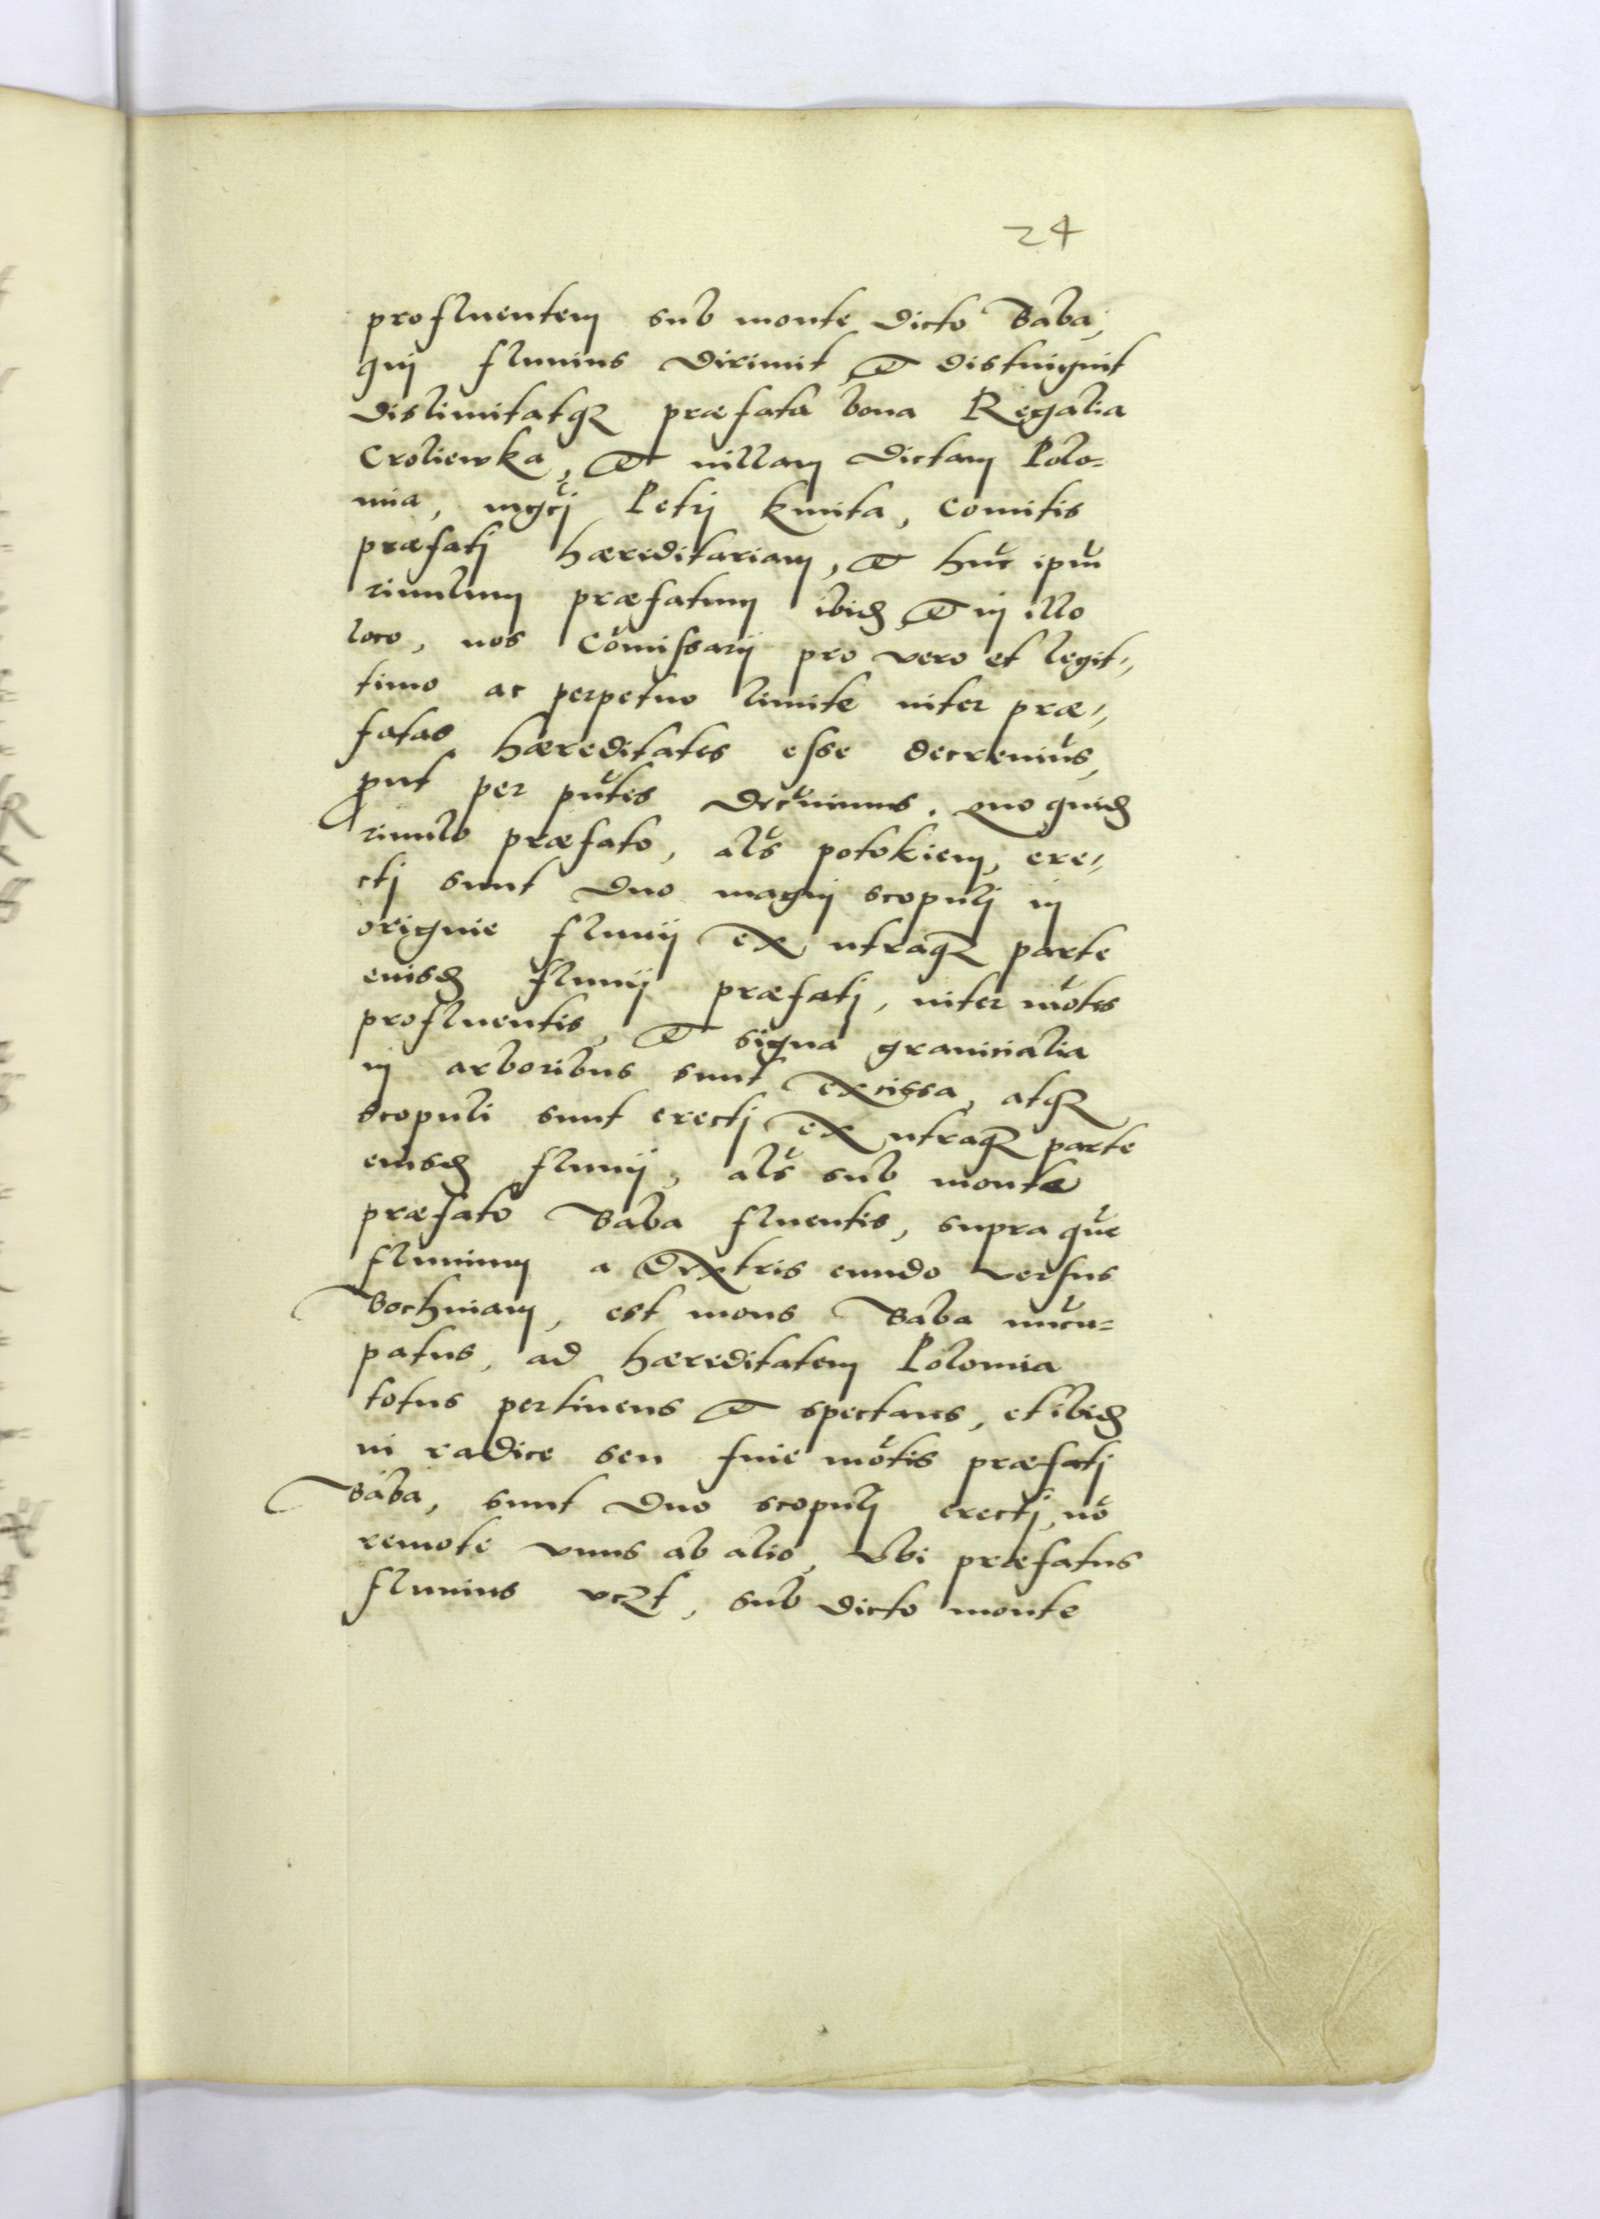 24
profluentem sub monte dicto Baba,
qui fluuius dirimit et distinguit
dislimitatq̃ præfata bona Regalia
Croliewka, et uillam dictam Polo=
mia, mg̃ci Petri Kmita, Comitis
præfati hæreditariam, et hũc ipũ
riuulum præfatum ibid et in illo
loco, nos Cõmissarij pro vero et legit=
timo ac perpetuo limite inter præ=
fatas hæreditates esse decreuim̃s,
put per pñtes decernimus. Quo quid
riuulo præfato, als potokiem, ere=
cti sunt duo magni scopuli in
origine fluuij ex utraq̃ parte
eiusd fluuij præfati, inter mõtes
profluentis, et signa granicialia
in arboribus sunt excissa, atq̃
scopuli sunt erecti ex utraq̃ parte
eiusd fluuij, als sub monte
præfato Baba fluentis, supra quẽ
fluuium a dextris eundo versus
Bochniam, est mons Baba nũcu=
patus, ad hæreditatem Polomia
totus pertinens et spectans, et ibid
in radice seu fine mõtis præfati
Baba, sunt duo scopuli erecti, nõ
remote vnus ab alio, vbi præfatus
fluuius vczt, sub dicto monte